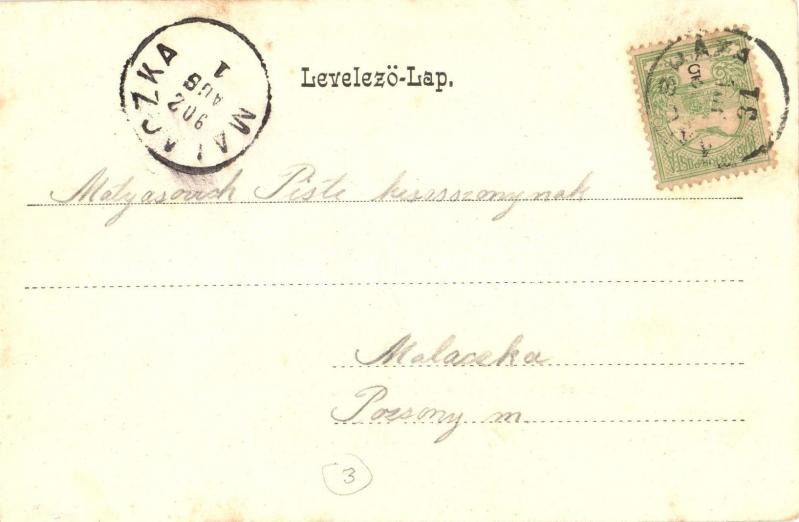 MALACZKA
902 AUG 1
Levelező-Lap.
31
Matyasovich Piste kisasszonynak
Malaczka
Pozsony m.
3